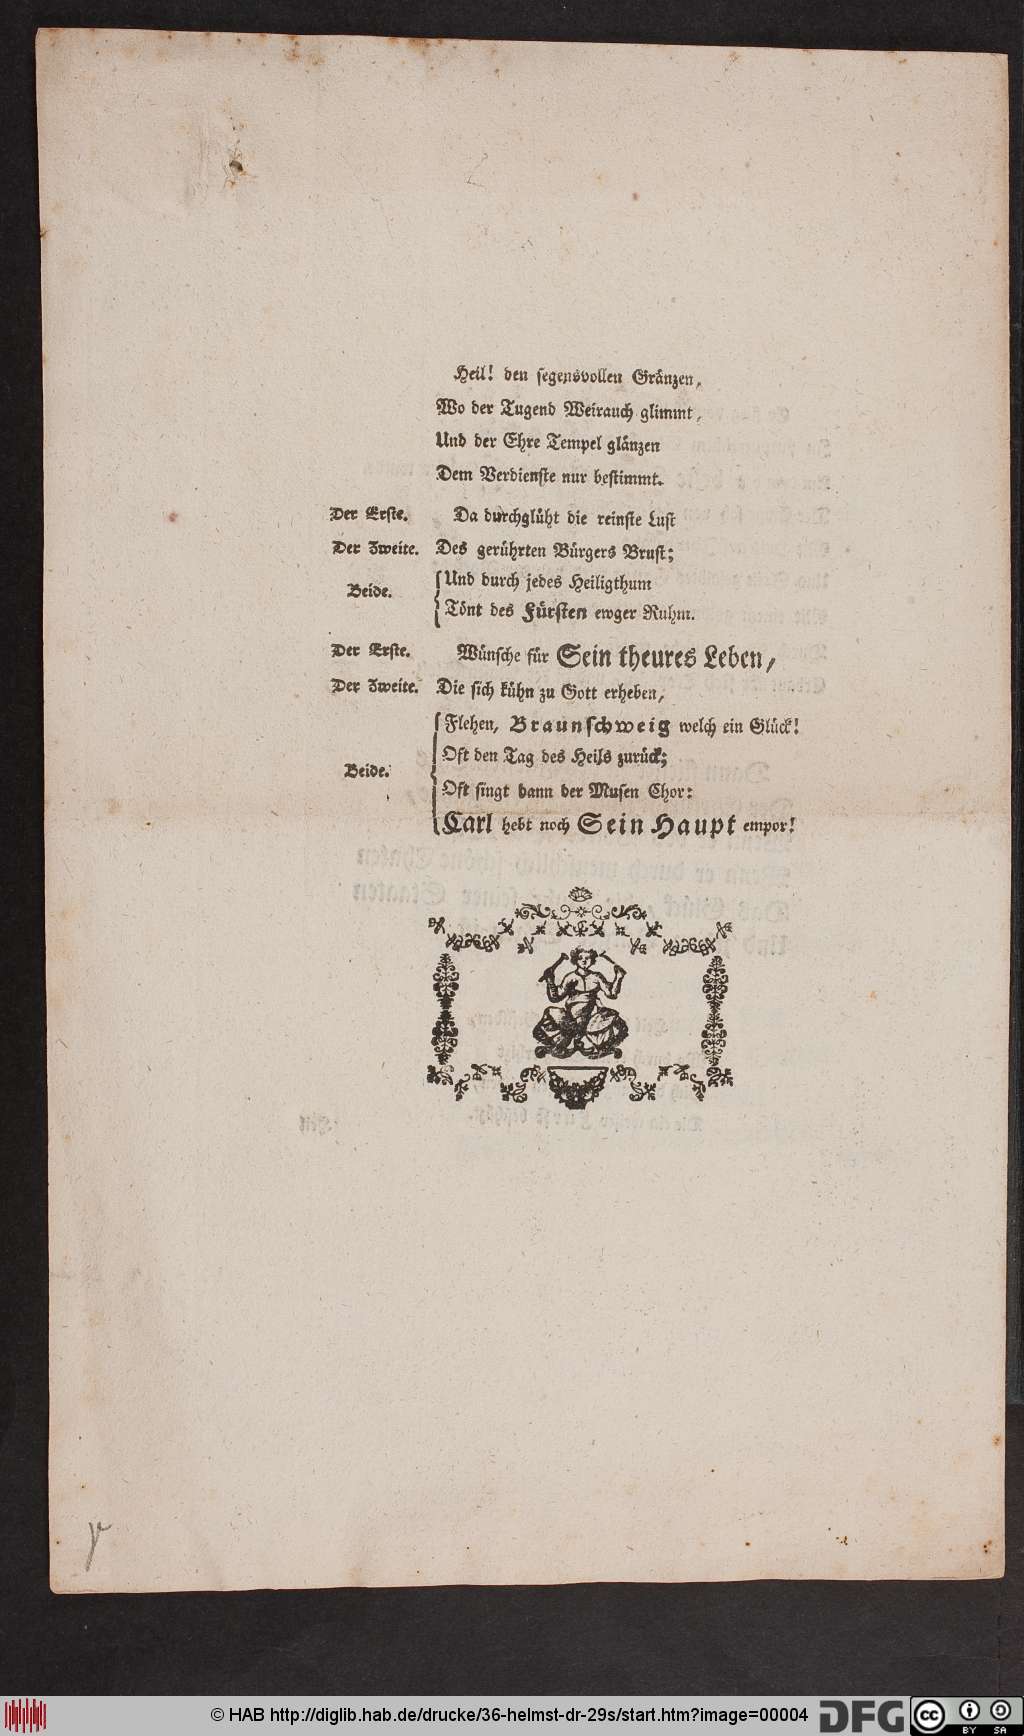 Heil! den segensvollen Gränzen,
Wo der Tugend Weirauch glimmt,
Und der Ehre Tempel glänzen
Dem Verdienste nur bestimmt.
Der Erste. Da durchglüht die reinste Lust
Der Zweite. Des gerührten Bürgers Brust;
Beide. Und durch jedes Heiligthum
Tönt des Fürsten ewger Ruhm.
Der Erste. Wünsche für Sein theures Leben,
Der Zweite. Die sich kühn zu Gott erheben,
Flehen, Braunschweig welch ein Glück!
Oft den Tag des Heils zurück;
Beide. Oft singt dann der Musen Chor:
Carl hebt noch Sein Haupt empor!
© HAB http://diglib.hab.de/drucke/36-helmst-dr-29s/start.htm?image=00004
DFG
cc BY SA